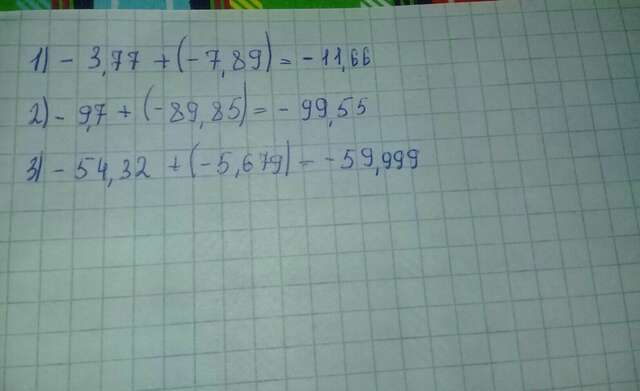 1) - 3,77 + (-7,89) = -11,66
2) - 9,7 + (-89,85) = - 99,55
3) - 54,32 + (-5,679) = -59,999